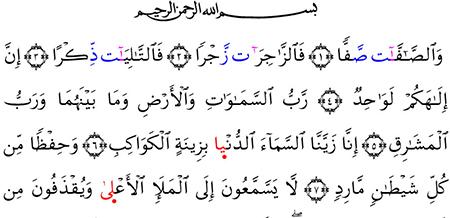 بسم الله الرحمن الرحيم
وَالصَّٰٓفَّٰتِ صَفًّا ﴿١﴾ فَالزَّٰجِرَٰتِ زَجْرًا ﴿٢﴾ فَالتَّٰلِيَٰتِ ذِكْرًا ﴿٣﴾ إِنَّ
إِلَٰهَكُمْ لَوَاحِدٌ ﴿٤﴾ رَّبُّ السَّمَٰوَاتِ وَالْأَرْضِ وَمَا بَيْنَهُمَا وَرَبُّ
الْمَشَارِقِ ﴿٥﴾ إِنَّا زَيَّنَّا السَّمَآءَ الدُّنْيَا بِزِينَةٍ الْكَوَاكِبِ ﴿٦﴾ وَحِفْظًا مِّن
كُلِّ شَيْطَٰنٍ مَّارِدٍ ﴿٧﴾ لَّا يَسَّمَّعُونَ إِلَى الْمَلَإِ الْأَعْلَىٰ وَيُقْذَفُونَ مِن